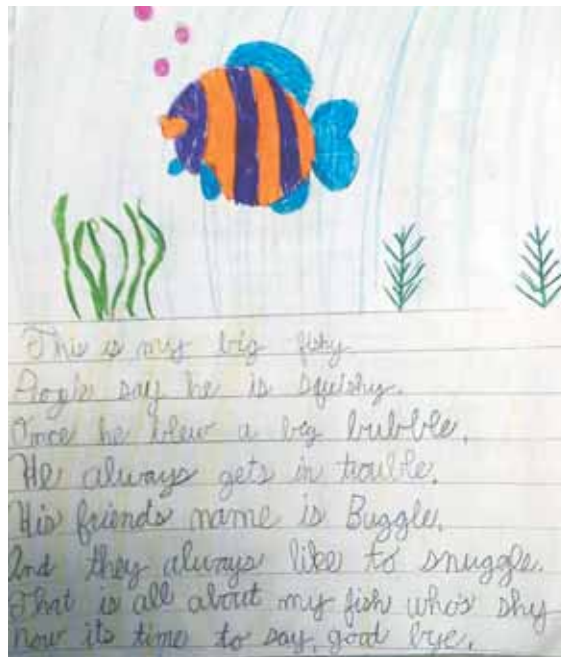 This is my big fishy
People say he is squishy.
Once he blew a big bubble.
He always gets in trouble.
His friends name is Buggle.
And they always like to snuggle.
That is all about my fish who's shy
now its time to say, good bye.